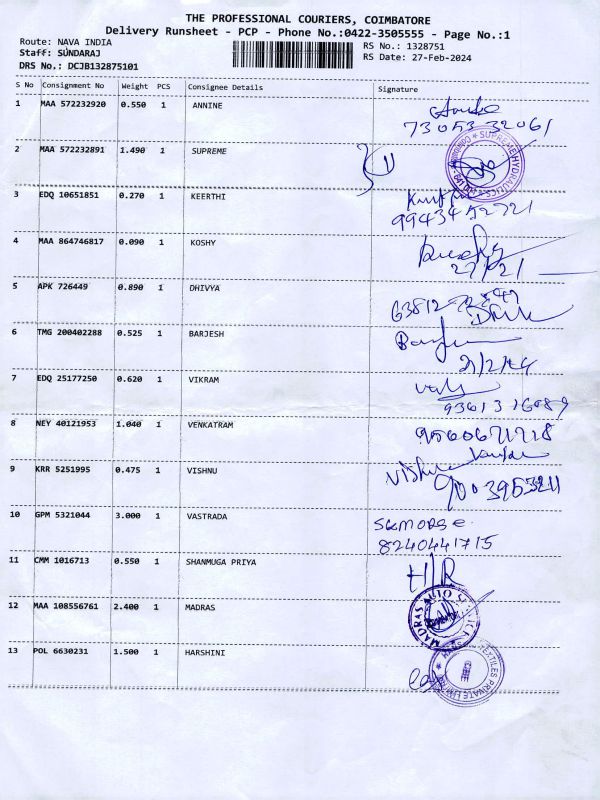 THE PROFESSIONAL COURIERS, COIMBATORE
Delivery Runsheet - PCP - Phone No.:0422-3505555 - Page No.:1
Route: NAVA INDIA RS No.: 1328751
Staff: SUNDARAJ RS Date: 27-Feb-2024
DRS No.: DCJB132875101
S No Consignment No Weight PCS Consignee Details Signature
1 MAA 572232920 0.550 1 ANNINE
73053 32061
2 MAA 572232891 1.490 1 SUPREME
3 EDQ 10651851 0.270 1 KEERTHI
4 MAA 864746817 0.090 1 KOSHY
5 APK 726449 0.890 1 DHIVYA
6 TMG 200402288 0.525 1 BARJESH
7 EDQ 25177250 0.620 1 VIKRAM
8 NEY 40121953 1.040 1 VENKATRAM
9 KRR 5251995 0.475 1 VISHNU
10 GPM 5321044 3.000 1 VASTRADA
8240441715
11 CMM 1016713 0.550 1 SHANMUGA PRIYA
H/R
12 MAA 108556761 2.400 1 MADRAS
MADRAS AUTO
13 POL 6630231 1.500 1 HARSHINI